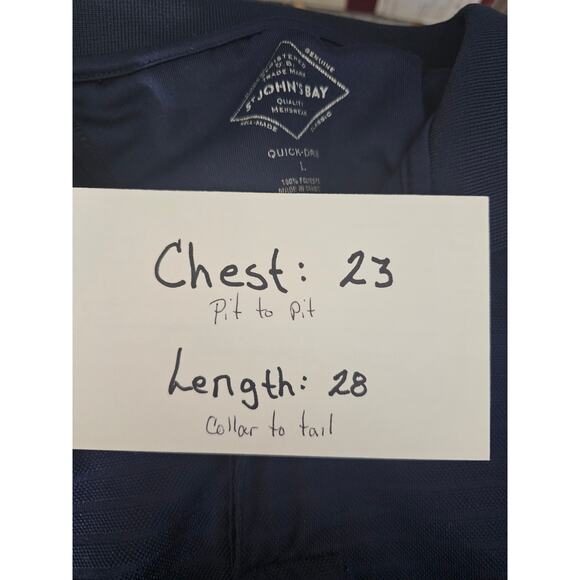 GENUINE
REGISTERED
U.S.
TRADE MARK
ST JOHN'S BAY
QUALITY
MENSWEAR
WELL-MADE
CLASSIC
QUICK-DRI
L
100%
MADE IN
Chest: 23
Pit to pit
Length: 28
Collar to tail